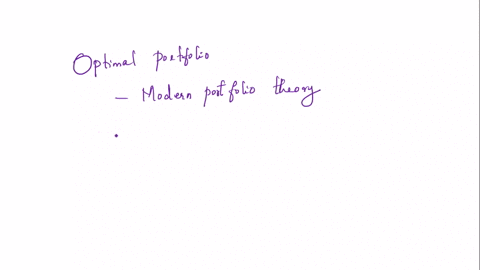 Optimal portfolio
- Modern portfolio theory